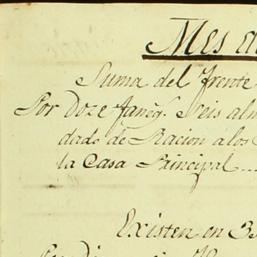 Mes a
Suma del frente
Por Doze faneg.s Seis alm
dado de Racion a los
la Casa Principal
Existen en 3